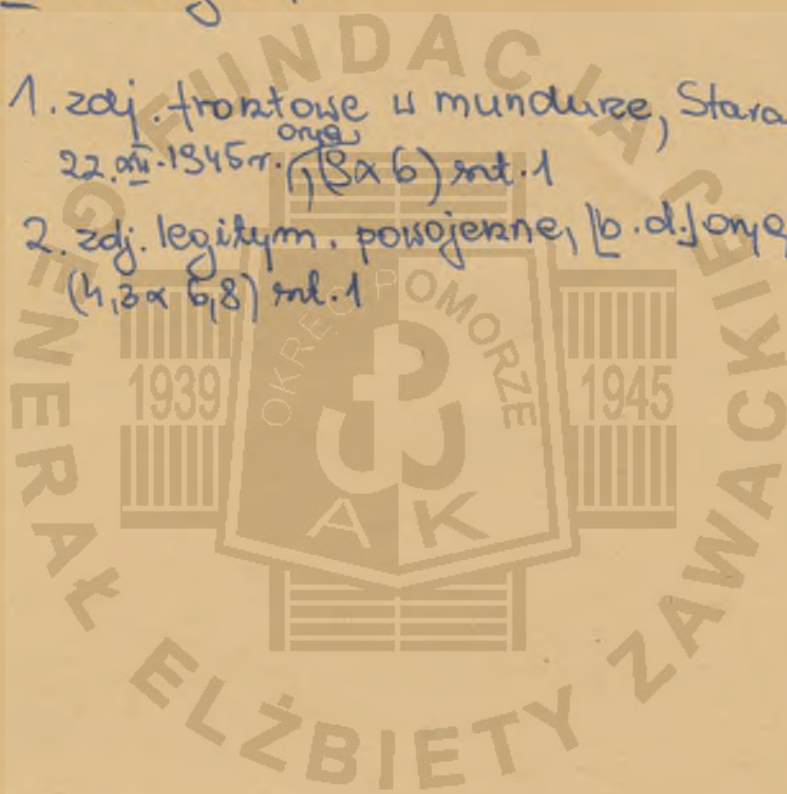 1. zdj. frontowe w mundurze, Stara
22.XII.1945r. oryg, (9x6) szt. 1
2. zdj. legitym. powojenne, [b.d.] oryg
(4,3 x 6,8) szt. 1
FUNDACJA GENERAŁ ELŻBIETY ZAWACKIEJ
OKRĘG POMORZE
1939
1945
AK